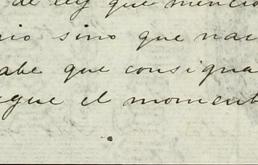 de ley que mencio
rio sino que nac
abe que consigna
egue el moment